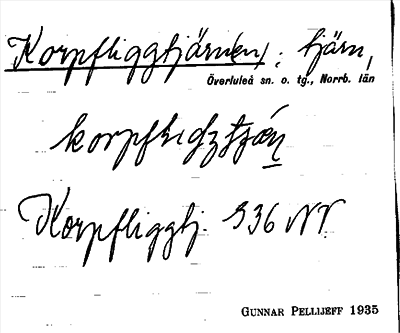 Korpfliggtjärn(en); tjärn,
Överluleå sn. o. tg., Norrb. län
Korpfliggtj. S36 NV.
GUNNAR PELLIJEFF 1935